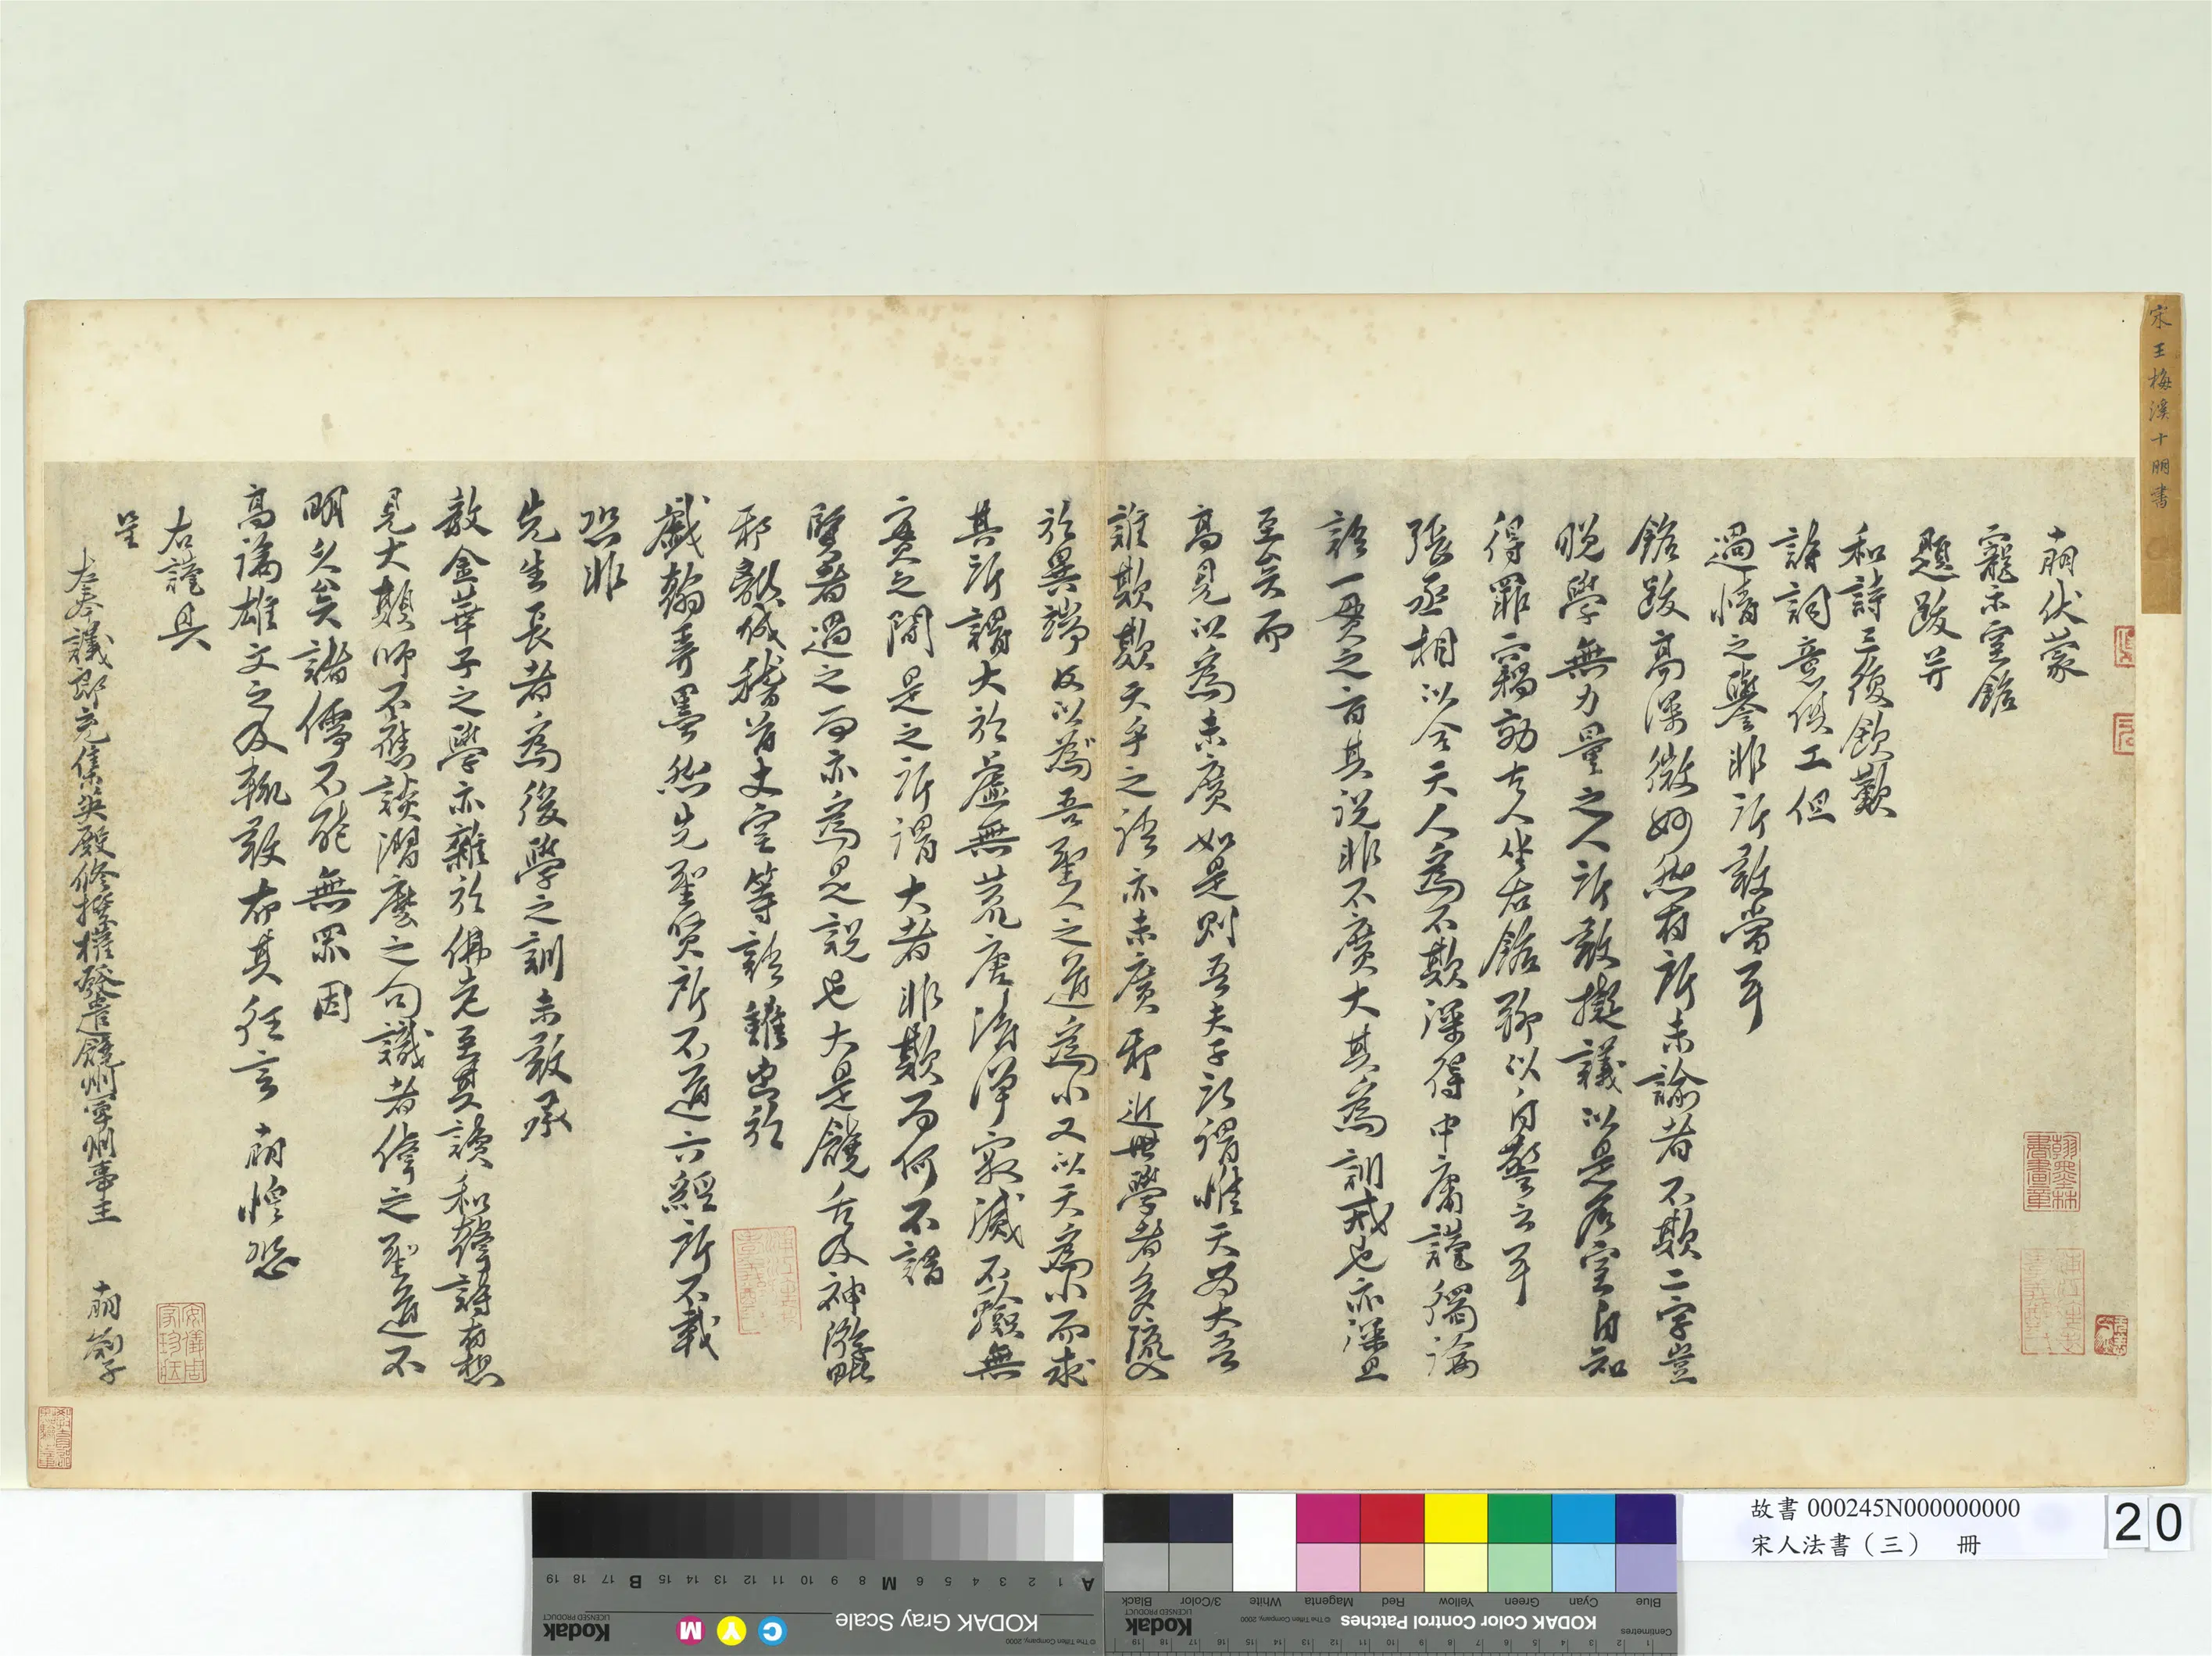 宋王梅溪十朋書
十朋伏蒙
寵示室銘
題跋并
和詩三復欽歎
詩詞意俱工但
過情之譽非所敢當耳
銘跋高深微妙然有所未諭者不欺二字豈
晚學無力量之人所敢擬議以是名室自知
得罪竊効古人坐右銘聊以自警云耳
張丞相以合天人為不欺深得中庸謹獨論
語一貫之旨其説非不廣大其為訓戒也亦深且
至矣而
高見以為未廣如是則吾夫子所謂惟天為大吾
誰欺欺天乎之語亦未廣邪近世學者多驚入
於異端反以為吾聖人之道為小又以天為小而求
其所謂大於虛無荒唐清淨寂滅不驗無
實之間是之所謂大者非欺而何不諳
賢者過之而亦為是説也大是饒舌及神
邪
稽首丈室等語雖出於
戲翰弄墨然先聖賢所不道六經所不載
恐非
先生長者為後學之訓未敢承
教金華子之學亦雜於佛老至其讀和韓詩有想
見大顛師不應談澗麼之句識者傷之聖道不
明久矣諸儒不能無罪因
高論雄文之及輒敢布其狂言十朋惶恐
右謹具
呈
左奉議郎充集英殿修撰權發遣饒州軍州事王 十朋 劄子
故書 000245N000000000
宋人法書（三） 冊
20
KODAK Gray Scale
Kodak
LICENSED PRODUCT
C Y M
© The Tiffen Company, 2000
A 1 2 3 4 5 6 M 8 9 10 11 12 13 14 15 B 17 18 19
KODAK Color Control Patches
Kodak
LICENSED PRODUCT
© The Tiffen Company, 2000
Blue Cyan Green Yellow Red Magenta White 3/Color Black
Centimetres